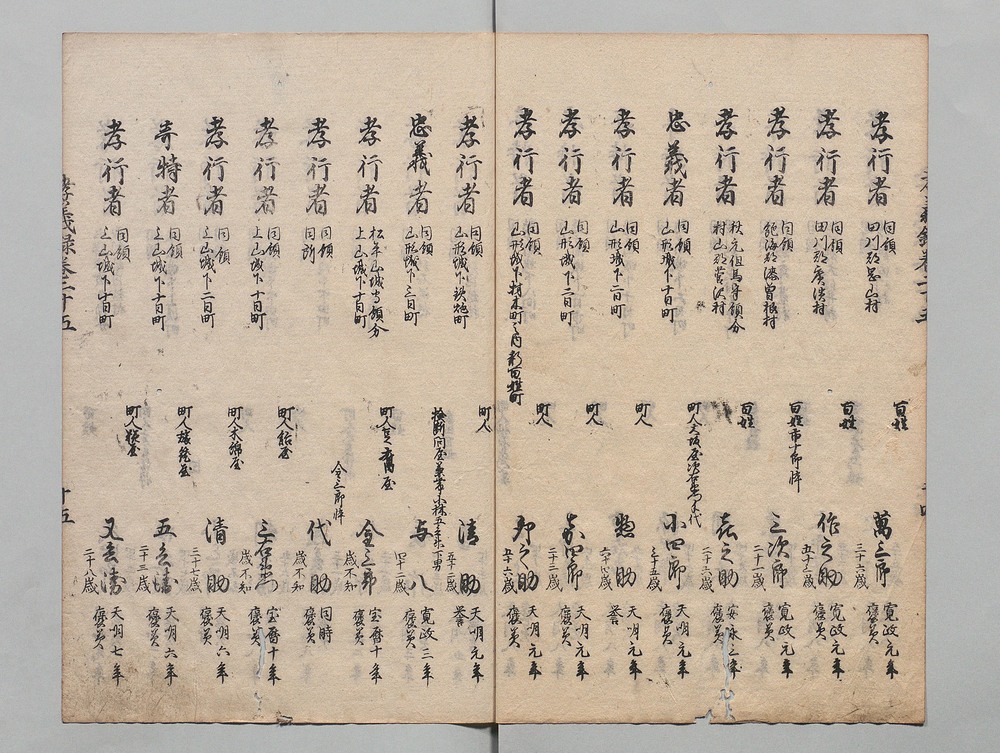 孝行者 同領 田川郡 山村 百姓 萬三郎 三十六歳 寛政元年 褒美
孝行者 同領 田川郡廣濱村 百姓 作之助 五十三歳 寛政元年 褒美
孝行者 同領 飽海郡漆曽根村 百姓市十郎悴 三次郎 二十一歳 寛政元年 褒美
孝行者 秋元但馬守領分 村山郡菅沢村 百姓 喜之助 二十六歳 安永三年 褒美
忠義者 同領 山形城下十日町 町人大坂屋次右衛門手代 小四郎 三十五歳 天明元年 褒美
孝行者 同領 山形城下二日町 町人 惣助 六十八歳 天明元年 誉
孝行者 同領 山形城下二日町 町人 嘉四郎 二十三歳 天明元年 褒美
孝行者 同領 山形城下材木町之内新百姓町 町人 即之助 五十六歳 天明元年 褒美
孝行者 同領 山形城下鉄炮町 町人 清助 五十二歳 天明元年 誉
忠義者 同領 山形城下三日町 検断問屋 下男 与八 四十二歳 寛政三年 褒美
孝行者 松平山城守領分 上山城下十日町 町人 屋 金三郎 歳不知 宝暦十年 褒美
孝行者 同領 同所 金三郎悴 代助 歳不知 同時 褒美
孝行者 同領 上山城下十日町 町人飴屋 三右衛門 歳不知 宝暦十年 褒美
孝行者 同領 上山城下二日町 町人木綿屋 清助 三十七歳 天明六年 褒美
奇特者 同領 上山城下十日町 町人 屋 五兵衛 二十三歳 天明六年 褒美
孝行者 同領 上山城下十日町 町人 屋 又兵衛 二十八歳 天明七年 褒美
孝義録巻二十五
十五